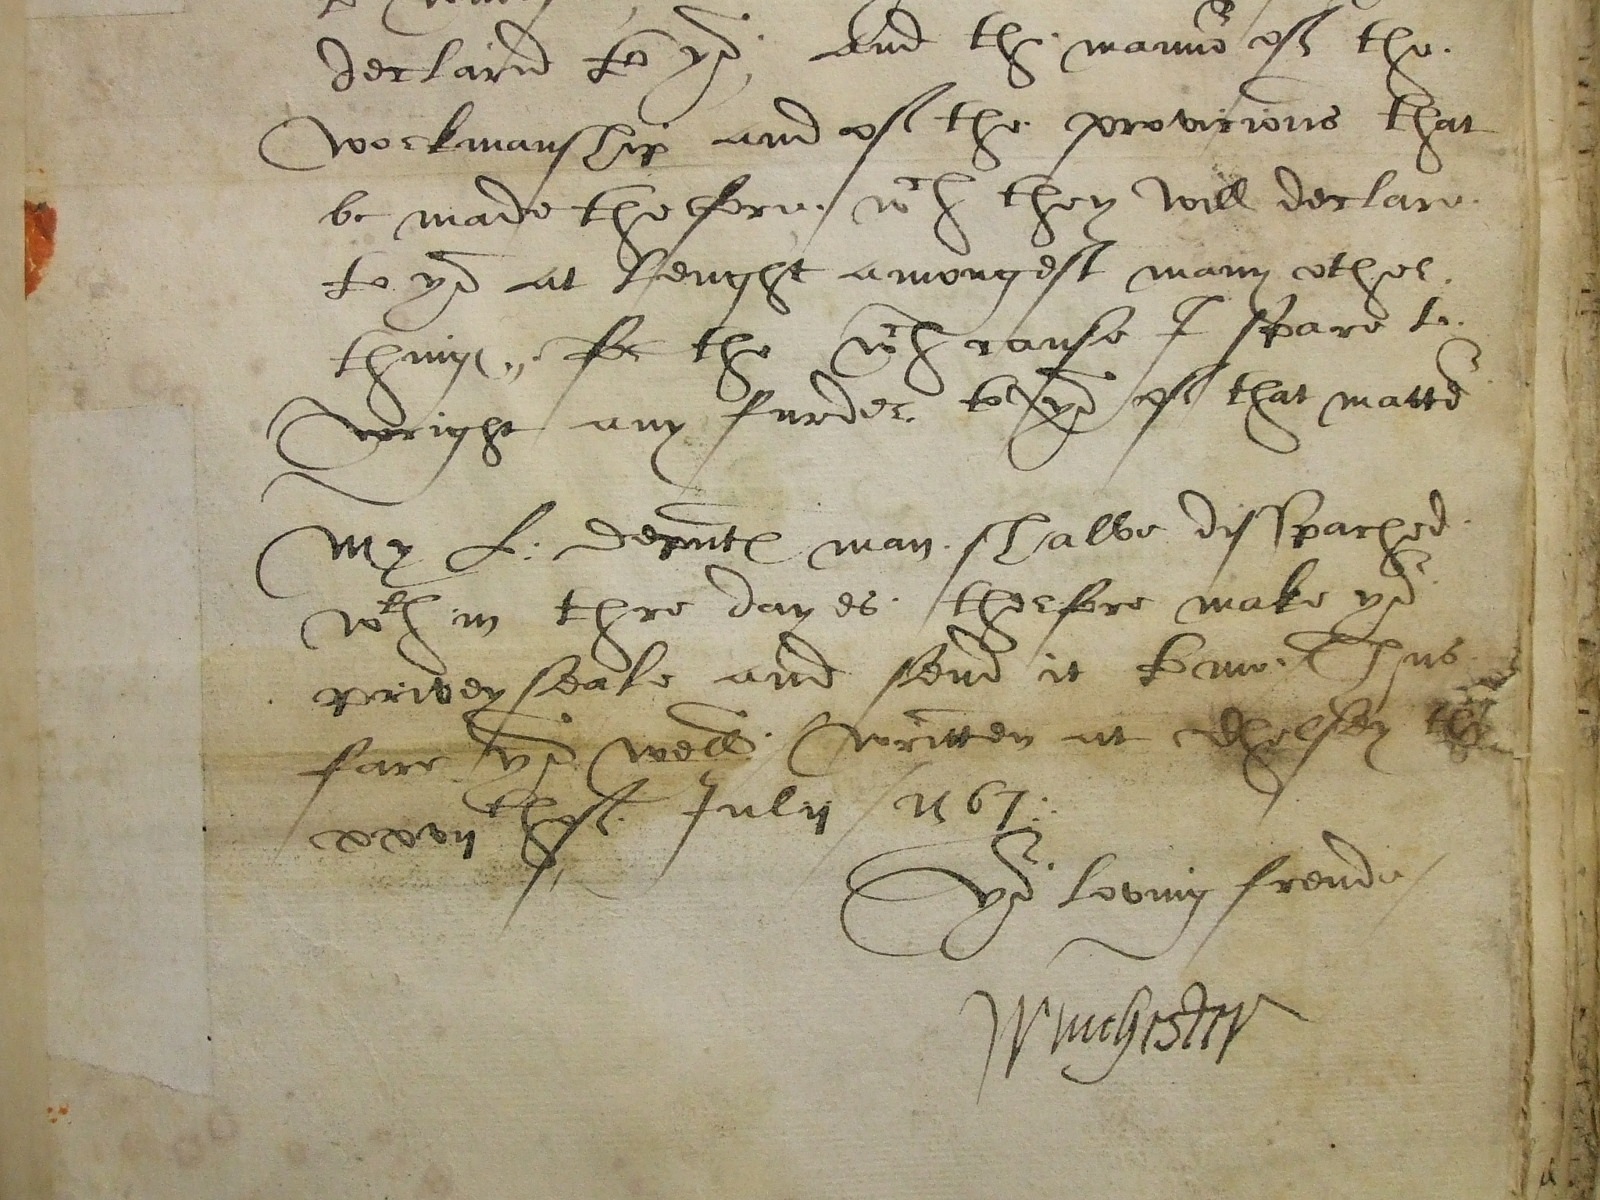 declarid to yor and the mannor of the
Workmanship and of the provicions that
be made therfore, wch they will declare
to yor at lenght amongest many other
things, for the wch cause I spare to
wright any furder to yor of that matter
My L. deputes man shalbe disspached
wth in thre dayes therfore make yor
privey seale and send it to me. Thus
fare yor well. Written at Chelsey the
xxvijth of July 1567.
yor loving frende
Winchester